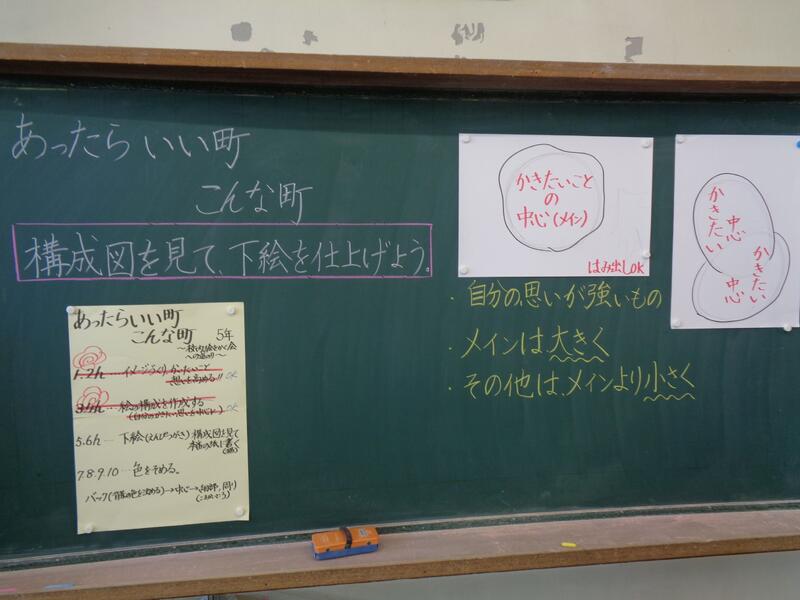 あったらいい町
こんな町
構成図を見て、下絵を仕上げよう。
あったらいい町
こんな町 5年
1.2h…イメージづくり、かきたいこと
想いを高める!! OK
3.4h…絵の構成を作成する
OK
5.6h…下絵(えんぴつがき)構成図を見て
7.8.9.10…色をそめる。
かきたいこと
の
中心(メイン)
はみ出しOK
・自分の思いが強いもの
・メインは大きく
・その他は、メインより小さく
かきたい
中心
かきたい
中心